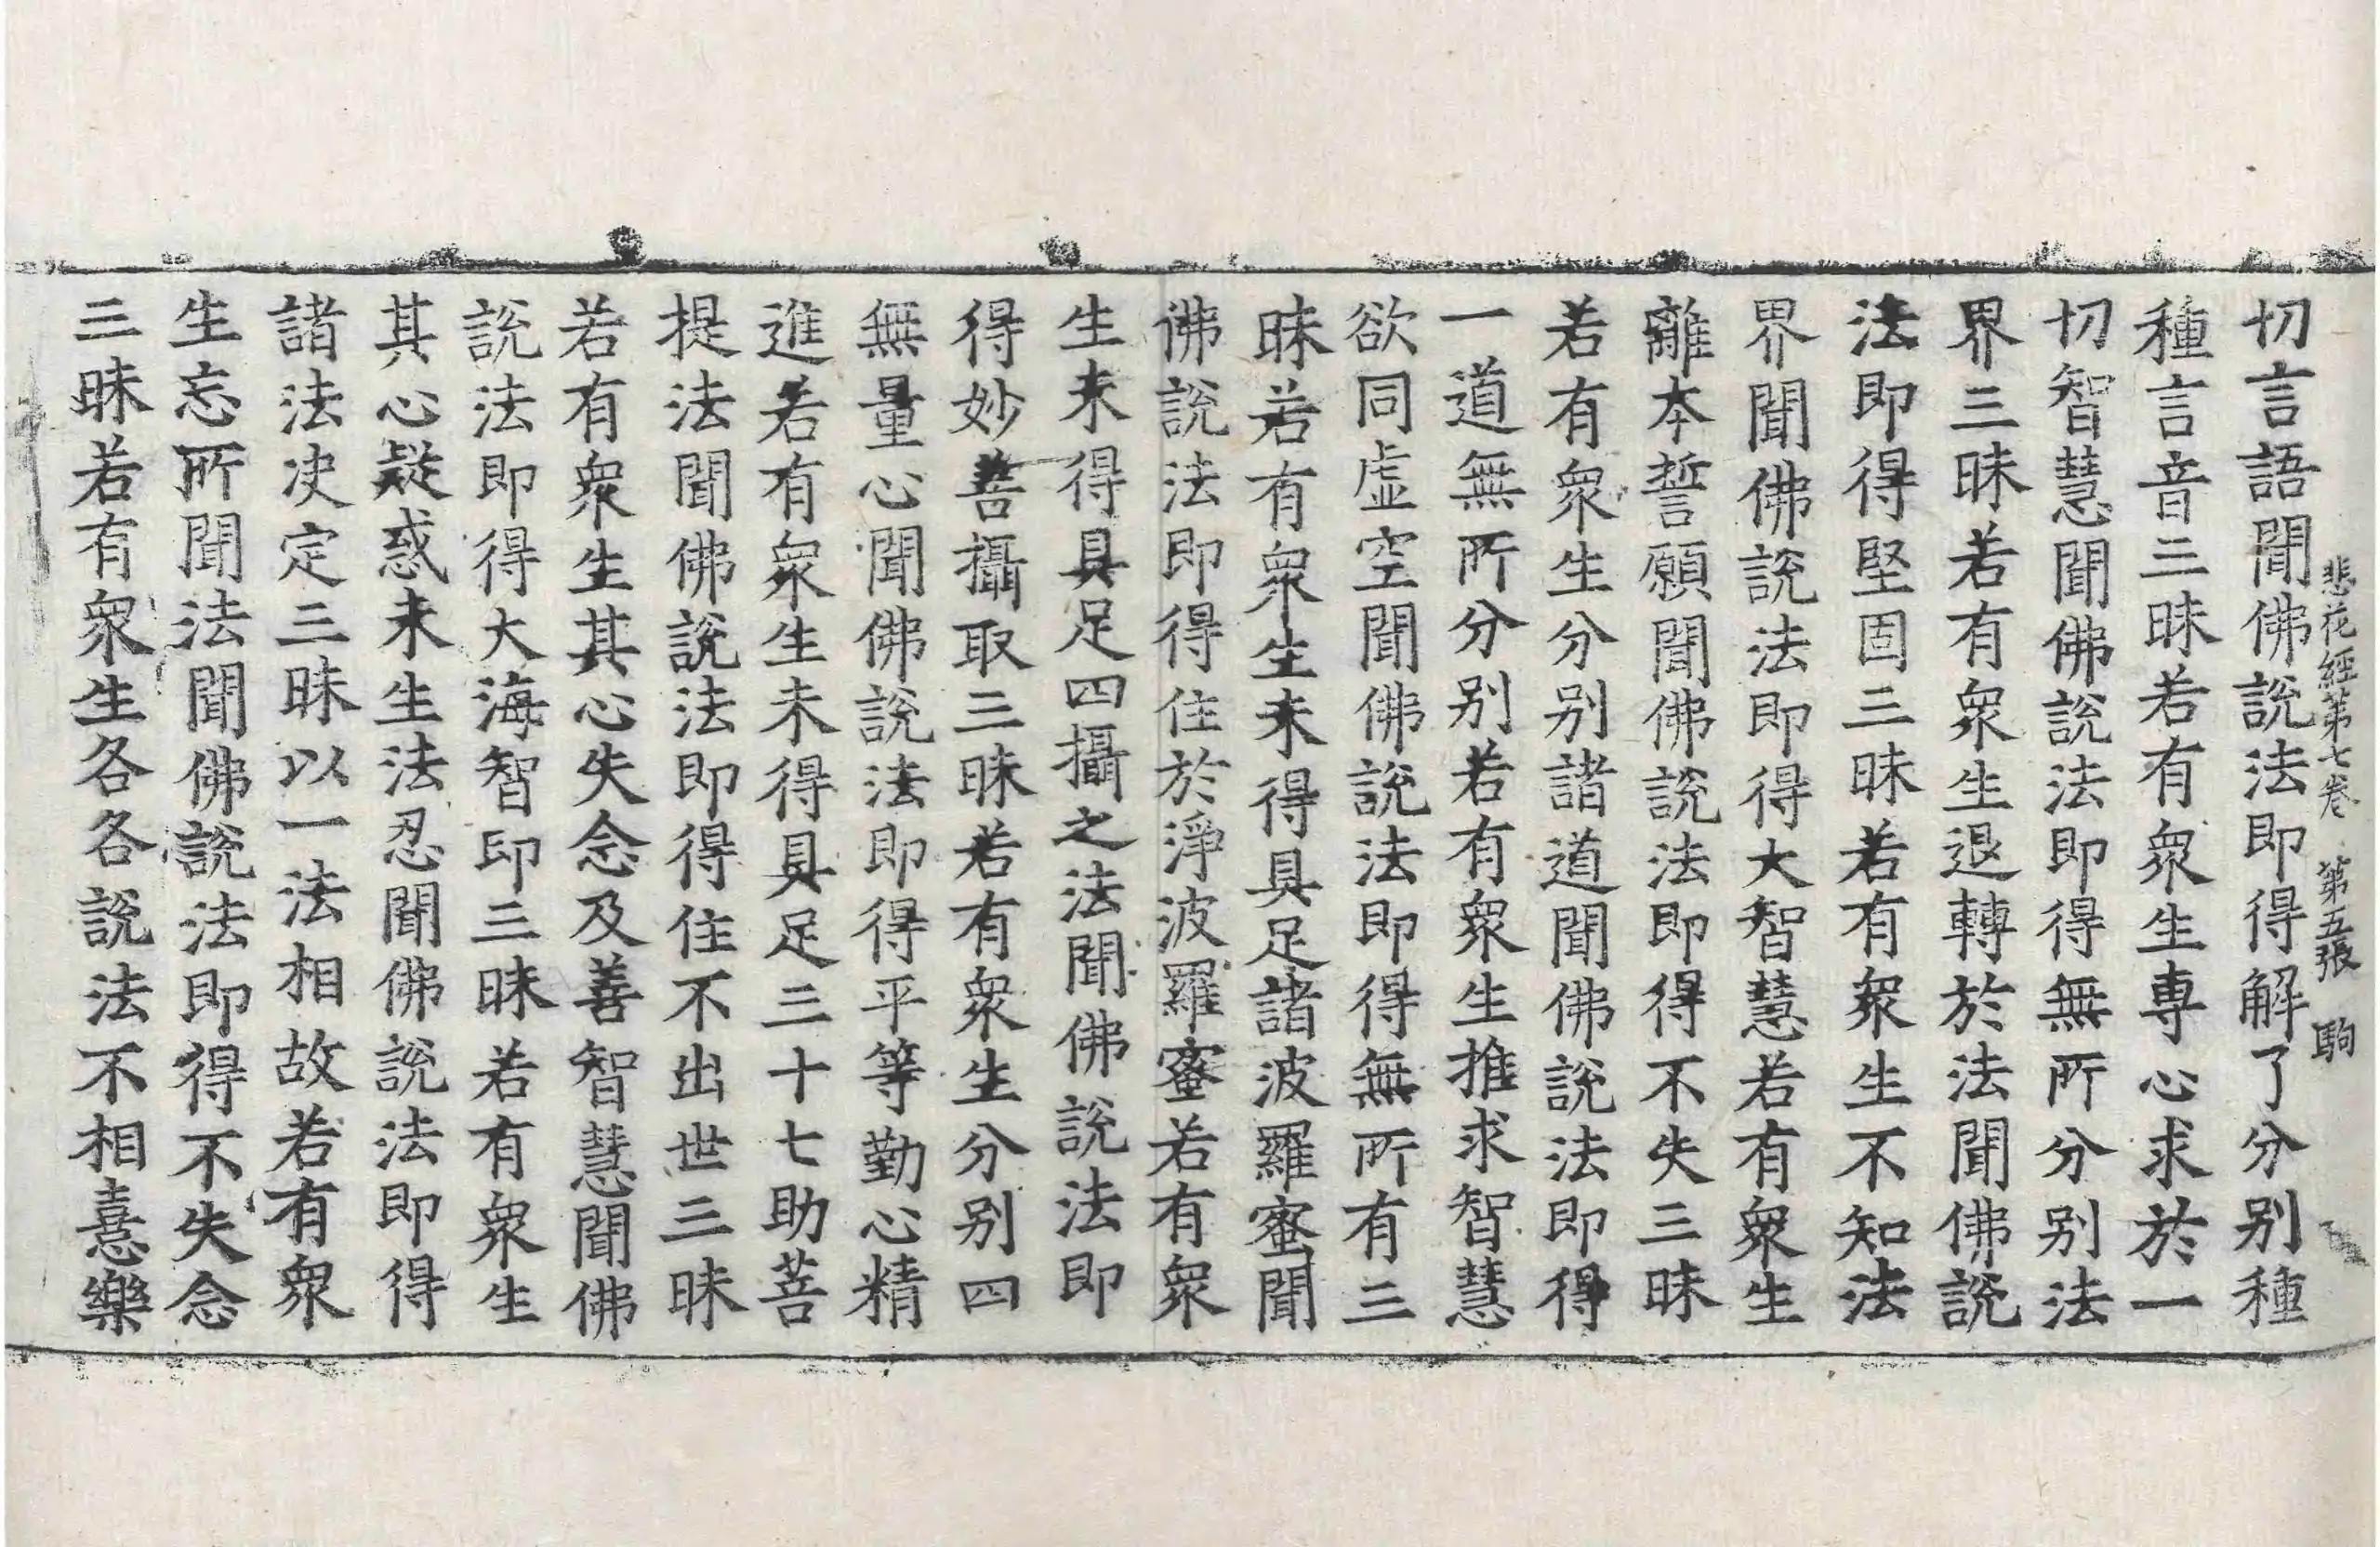 悲花經第七卷 第五張 駒
切言語聞佛說法即得解了分別種
種言音三昧若有衆生專心求於一
切智慧聞佛說法即得無所分別法
界三昧若有衆生退轉於法聞佛說
法即得堅固三昧若有衆生不知法
界聞佛說法即得大智慧若有衆生
離本誓願聞佛說法即得不失三昧
若有衆生分別諸道聞佛說法即得
一道無所分別若有衆生推求智慧
欲同虛空聞佛說法即得無所有三
昧若有衆生未得具足諸波羅蜜聞
佛說法即得住於淨波羅蜜若有衆
生未得具足四攝之法聞佛說法即
得妙善攝取三昧若有衆生分別四
無量心聞佛說法即得平等勤心精
進若有衆生未得具足三十七助菩
提法聞佛說法即得住不出世三昧
若有衆生其心失念及善智慧聞佛
說法即得大海智印三昧若有衆生
其心疑惑未生法忍聞佛說法即得
諸法决定三昧以一法相故若有衆
生忘所聞法聞佛說法即得不失念
三昧若有衆生各各說法不相憙樂